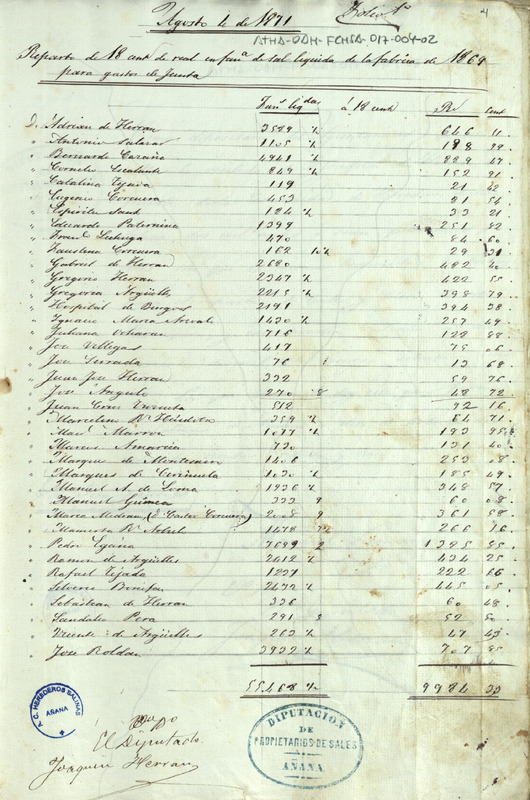 Agosto 1º de 1871
ATHA-DAH-FCHSA-017-004-02
4
Reparto de 18 cent de real en fanª de sal líquida de la fabrica de 1869
para gastos de Junta
Fans liqdas á 18 cents Rs Cent
D. Adrian de Herran 3589 ½ 646 11
" Antonio Salazar 1105 ½ 198 99
" Bernardo 4941 ½ 889 47
" Cornelio Escalante 849 ½ 152 91
" Catalina Tejada 119 21 42
" Eugenio Corcuera 453 81 54
" Espiritu Santo 184 ½ 33 21
" Eduardo Paternina 1399 251 82
" 470 84 60
" Faustina Corcuera 162 10½ 29 31
" Gabriel de Herran 2680 482 40
" Gregorio Herran 2347 ½ 422 55
" Gregoria Argüelles 2215 ½ 398 79
" Hospital de Burgos 2191 394 38
" Ignacio Maria 1430 ½ 257 49
" Juliana 716 128 88
" Jose Villegas 417 75 06
" Jose Serrada 76 13 68
" Juan Jose Herran 332 59 76
" Jose Angulo 270 8 48 72
" Juan Cruz 512 92 16
" Marcelino 359 ½ 64 71
" 1077 ½ 193 95
" 730 131 40
" Marques de Montesacro 1406 253 08
" Marques de 1030 ½ 185 49
" Manuel A. de Lema 1936 ½ 348 57
" Manuel Guinea 333 9 60 08
" Maria Medrano (D. Castor Corcuera) 2008 9 361 58
" 1478 266 16
" Pedro 7699 2 1385 85
" Ramon de Argüelles 2412 ½ 434 25
" Rafael Tejada 1237 222 66
" Silverio 2472 ½ 445 05
" Sebastian de Herran 336 60 48
" Sandalio 291 8 52 50
" Vicente de Argüelles 263 ½ 47 43
" Jose Roldan 3932 ½ 707 85
55468 ½ 9984 33
El Diputado
Joaquin Herran
P. C. HEREDEROS SALINAS
AÑANA
DIPUTACION
DE
PROPIETARIOS DE SALES
AÑANA